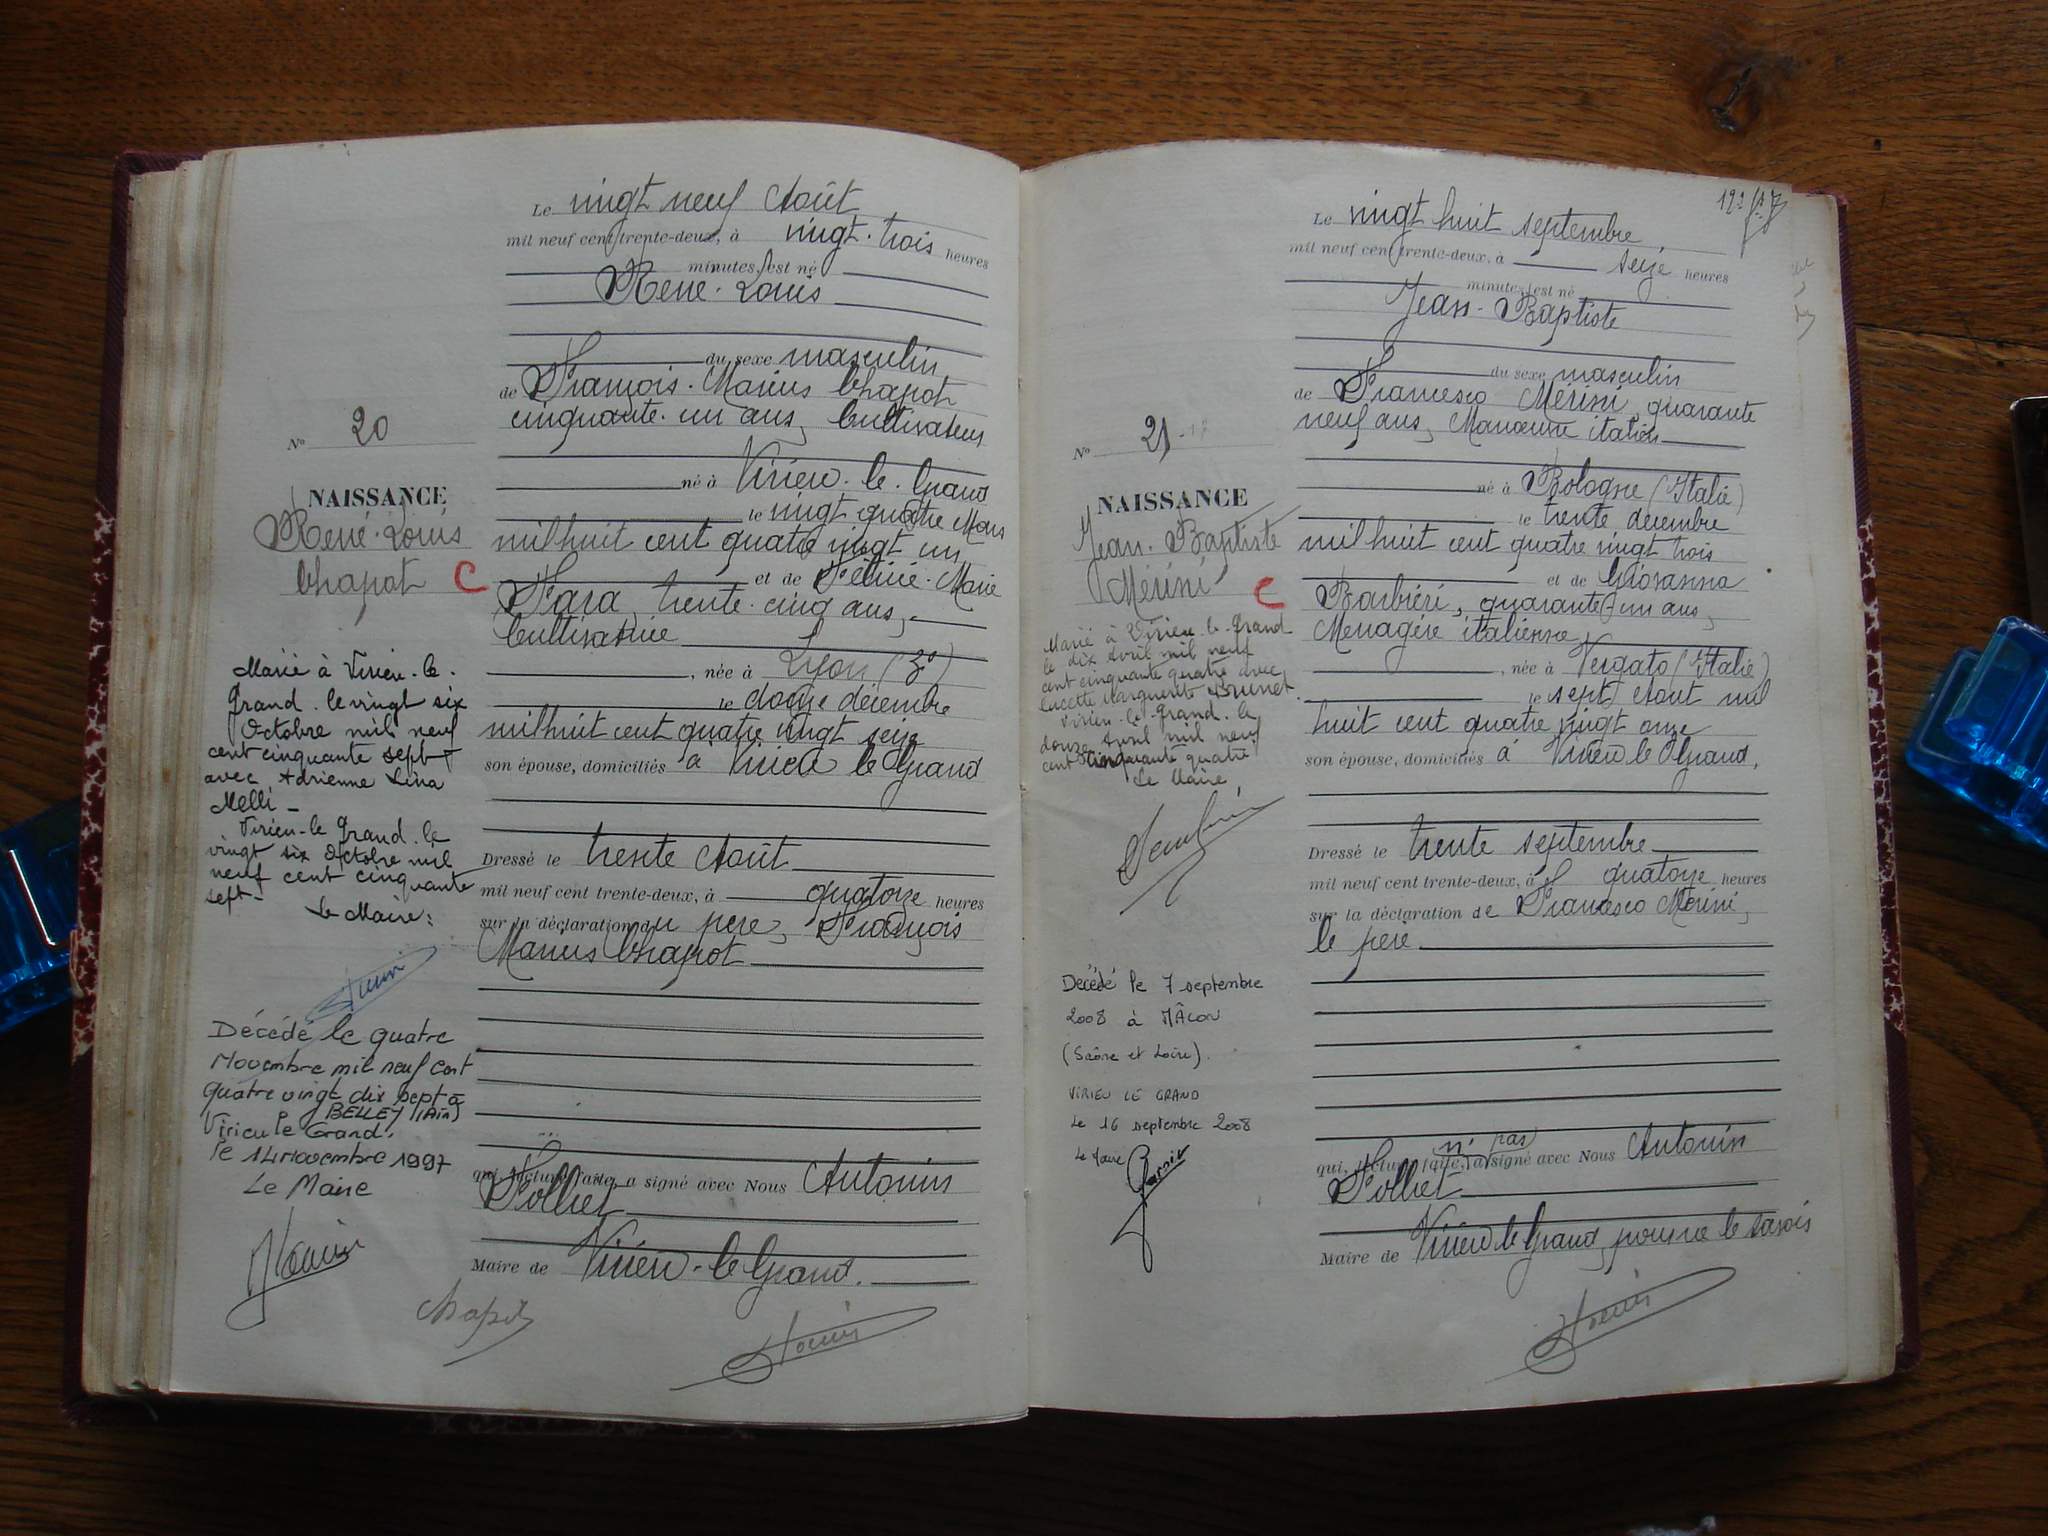 Le vingt neuf Août
mil neuf cent trente-deux, à vingt-trois heures
minutes, est né
René-Louis
du sexe masculin
de François-Marius Chapot
cinquante-un ans, Cultivateur
né à Virieu-le-Grand
le vingt quatre Mars
mil huit cent quatre vingt un
et de Félicie-Marie
trente-cinq ans,
Cultivatrice
, née à Lyon (3e)
le douze décembre
mil huit cent quatre vingt seize
son épouse, domiciliés à Virieu le Grand
Dressé le trente Août
mil neuf cent trente-deux, à quatorze heures
sur la déclaration du père, François
Marius Chapot
qui, lecture faite, a signé avec Nous Antonin
Maire de Virieu-le-Grand.
Chapot
No 20
NAISSANCE
René-Louis
Chapot C
Marié à Virieu-le-
Grand le vingt six
Octobre mil neuf
cent cinquante sept
avec Adrienne Lina
Melli -
Virieu-le Grand. le
vingt six Octobre mil
neuf cent cinquante
sept-
Le Maire:
Décédé le quatre
Novembre mil neuf cent
quatre vingt dix sept à
BELLEY (Ain)
Virieu le Grand,
le 14 novembre 1997
Le Maire
Le vingt huit septembre,
mil neuf cent trente-deux, à seize heures
minutes, est né
Jean-Baptiste
du sexe masculin
de Francesco Mérini, quarante
neuf ans, Manœuvre italien
né à Bologne (Italie)
le trente décembre
mil huit cent quatre vingt trois
et de Giovanna
Barbiéri, quarante-un ans,
Ménagère italienne
, née à Vergato (Italie)
le sept Août mil
huit cent quatre vingt onze
son épouse, domiciliés à Virieu le Grand,
Dressé le trente septembre
mil neuf cent trente-deux, à quatorze heures
sur la déclaration de Francesco Mérini,
le père
qui, lecture faite, n'a pas signé avec Nous Antonin
Maire de Virieu le Grand, pour ne le savoir
No 21
NAISSANCE
Jean-Baptiste
Mérini C
Marié à Virieu-le-Grand
le dix Avril mil neuf
cent cinquante quatre avec
Lucette Marguerite Brunet.
Virieu-le-Grand. le
douze Avril mil neuf
cent cinquante quatre
Le Maire,
Décédé le 7 septembre
2008 à MÂCON
(Saône et Loire).
VIRIEU LE GRAND
Le 16 septembre 2008
Le Maire